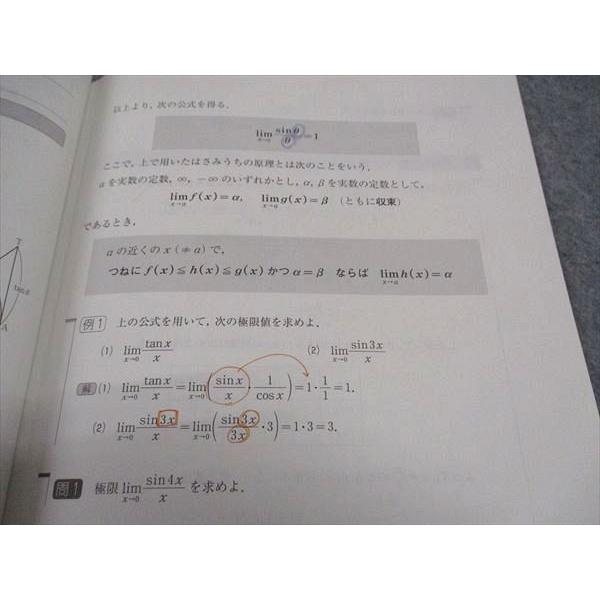 以上より，次の公式を得る．
lim θ→0 sinθ/θ = 1
ここで，上で用いたはさみうちの原理とは次のことをいう．
aを実数の定数，∞，−∞のいずれかとし，α，βを実数の定数として，
lim x→a f(x)=α, lim x→a g(x)=β （ともに収束）
であるとき，
aの近くのx（≠a）で，
つねに f(x)≦h(x)≦g(x) かつ α=β ならば lim x→a h(x)=α
例1 上の公式を用いて，次の極限値を求めよ．
(1) lim x→0 tanx/x (2) lim x→0 sin3x/x
解 (1) lim x→0 tanx/x = lim x→0 (sinx/x · 1/cosx) = 1 · 1/1 = 1.
(2) lim x→0 sin3x/x = lim x→0 (sin3x/3x · 3) = 1·3 = 3.
問1 極限 lim x→0 sin4x/x を求めよ．
T
tanθ
A